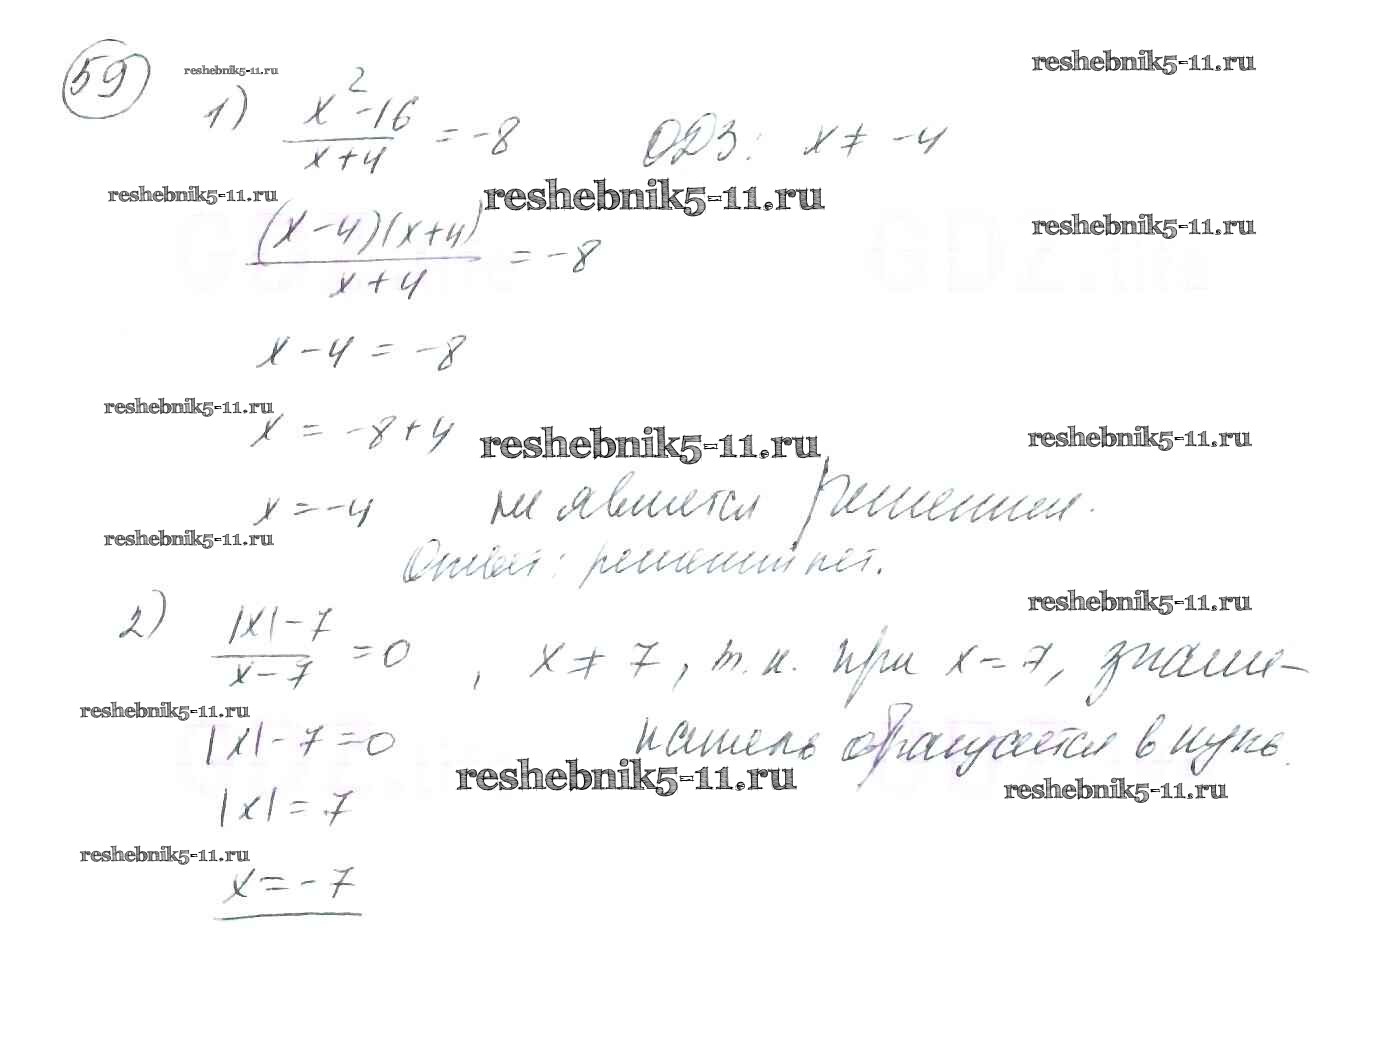 59
reshebnik5-11.ru
reshebnik5-11.ru
1) (x²-16)/(x+4) = -8 ОДЗ: x ≠ -4
reshebnik5-11.ru
reshebnik5-11.ru
reshebnik5-11.ru
((x-4)(x+4))/(x+4) = -8
x-4 = -8
reshebnik5-11.ru
x = -8+4
reshebnik5-11.ru
reshebnik5-11.ru
x = -4 не является решением.
reshebnik5-11.ru
Ответ: решений нет.
reshebnik5-11.ru
2) (|x|-7)/(x-7) = 0, x ≠ 7, т.к. при x = 7, знаме-
reshebnik5-11.ru
|x|-7=0 натель обращается в нуль.
reshebnik5-11.ru
reshebnik5-11.ru
|x| = 7
reshebnik5-11.ru
x = -7